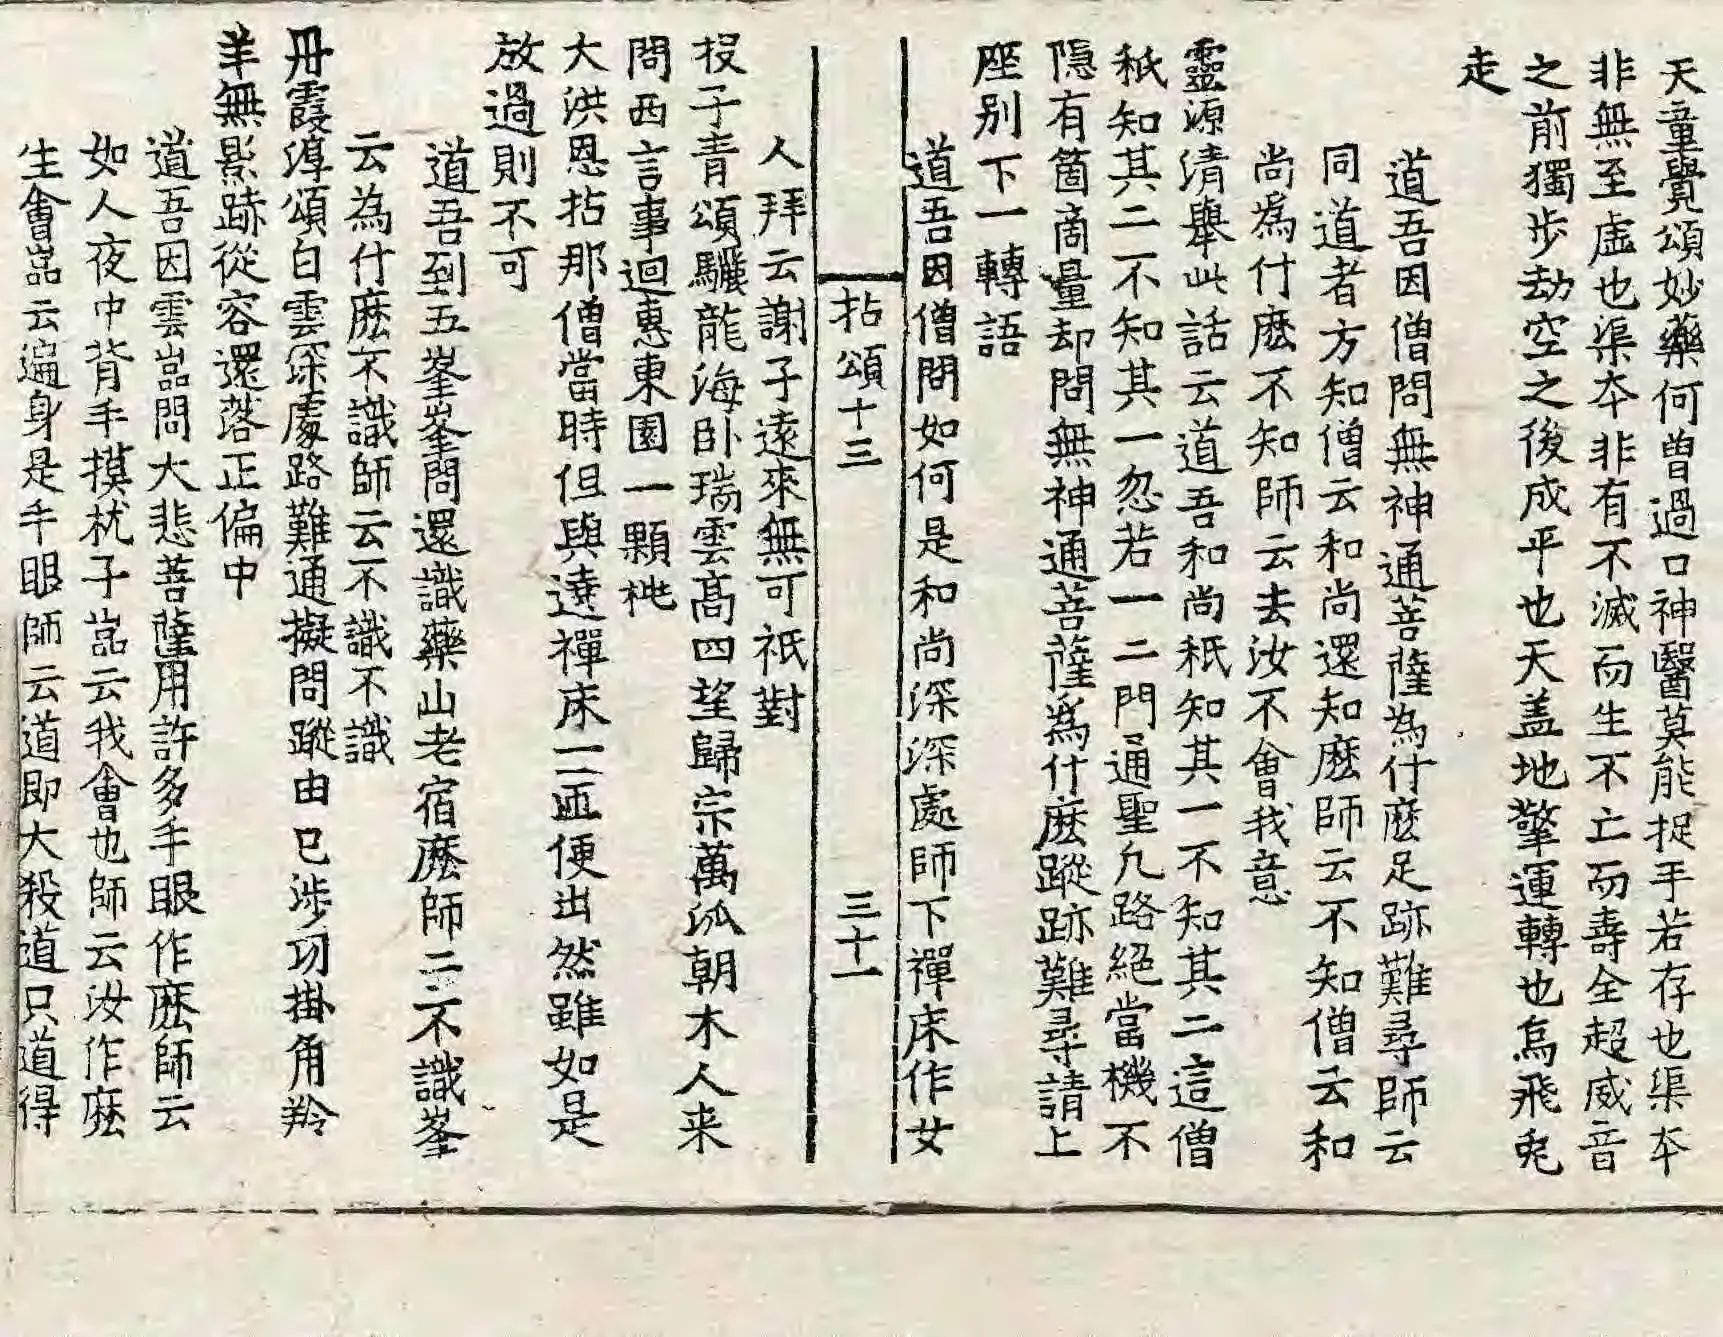 天童覺頌妙藥何曾過口神醫莫能捉手若存也渠本
非無至虛也渠本非有不滅而生不亡而壽全超威音
之前獨步劫空之後成平也天盖地擎運轉也烏飛兔
走
道吾因僧問無神通菩薩為什麽足跡難尋師云
同道者方知僧云和尚還知麽師云不知僧云和
尚爲什麽不知師云去汝不會我意
靈源清舉此話云道吾和尚秖知其一不知其二這僧
秖知其二不知其一忽若一二門通聖凡路絕當機不
隠有箇商量却問無神通菩薩為什麽蹤跡難尋請上
座別下一轉語
道吾因僧問如何是和尚深深處師下禪床作女
拈頌十三 三十一
人拜云謝子遠來無可祇對
投子青頌驪龍海卧瑞雲髙四望歸宗萬派朝木人来
問西言事迴惠東園一顆桃
大洪恩拈那僧當時但與遶禪床一匝便出然雖如是
放過則不可
道吾到五峯峯問還識藥山老宿麽師云不識峯
云為什麽不識師云不識不識
丹霞淳頌白雲深處路難通擬問蹤由已涉功掛角羚
羊無影跡從容還落正偏中
道吾因雲嵓問大悲菩薩用許多手眼作麽師云
如人夜中背手摸枕子嵓云我會也師云汝作麽
生會嵓云遍身是手眼師云道即大殺道只道得